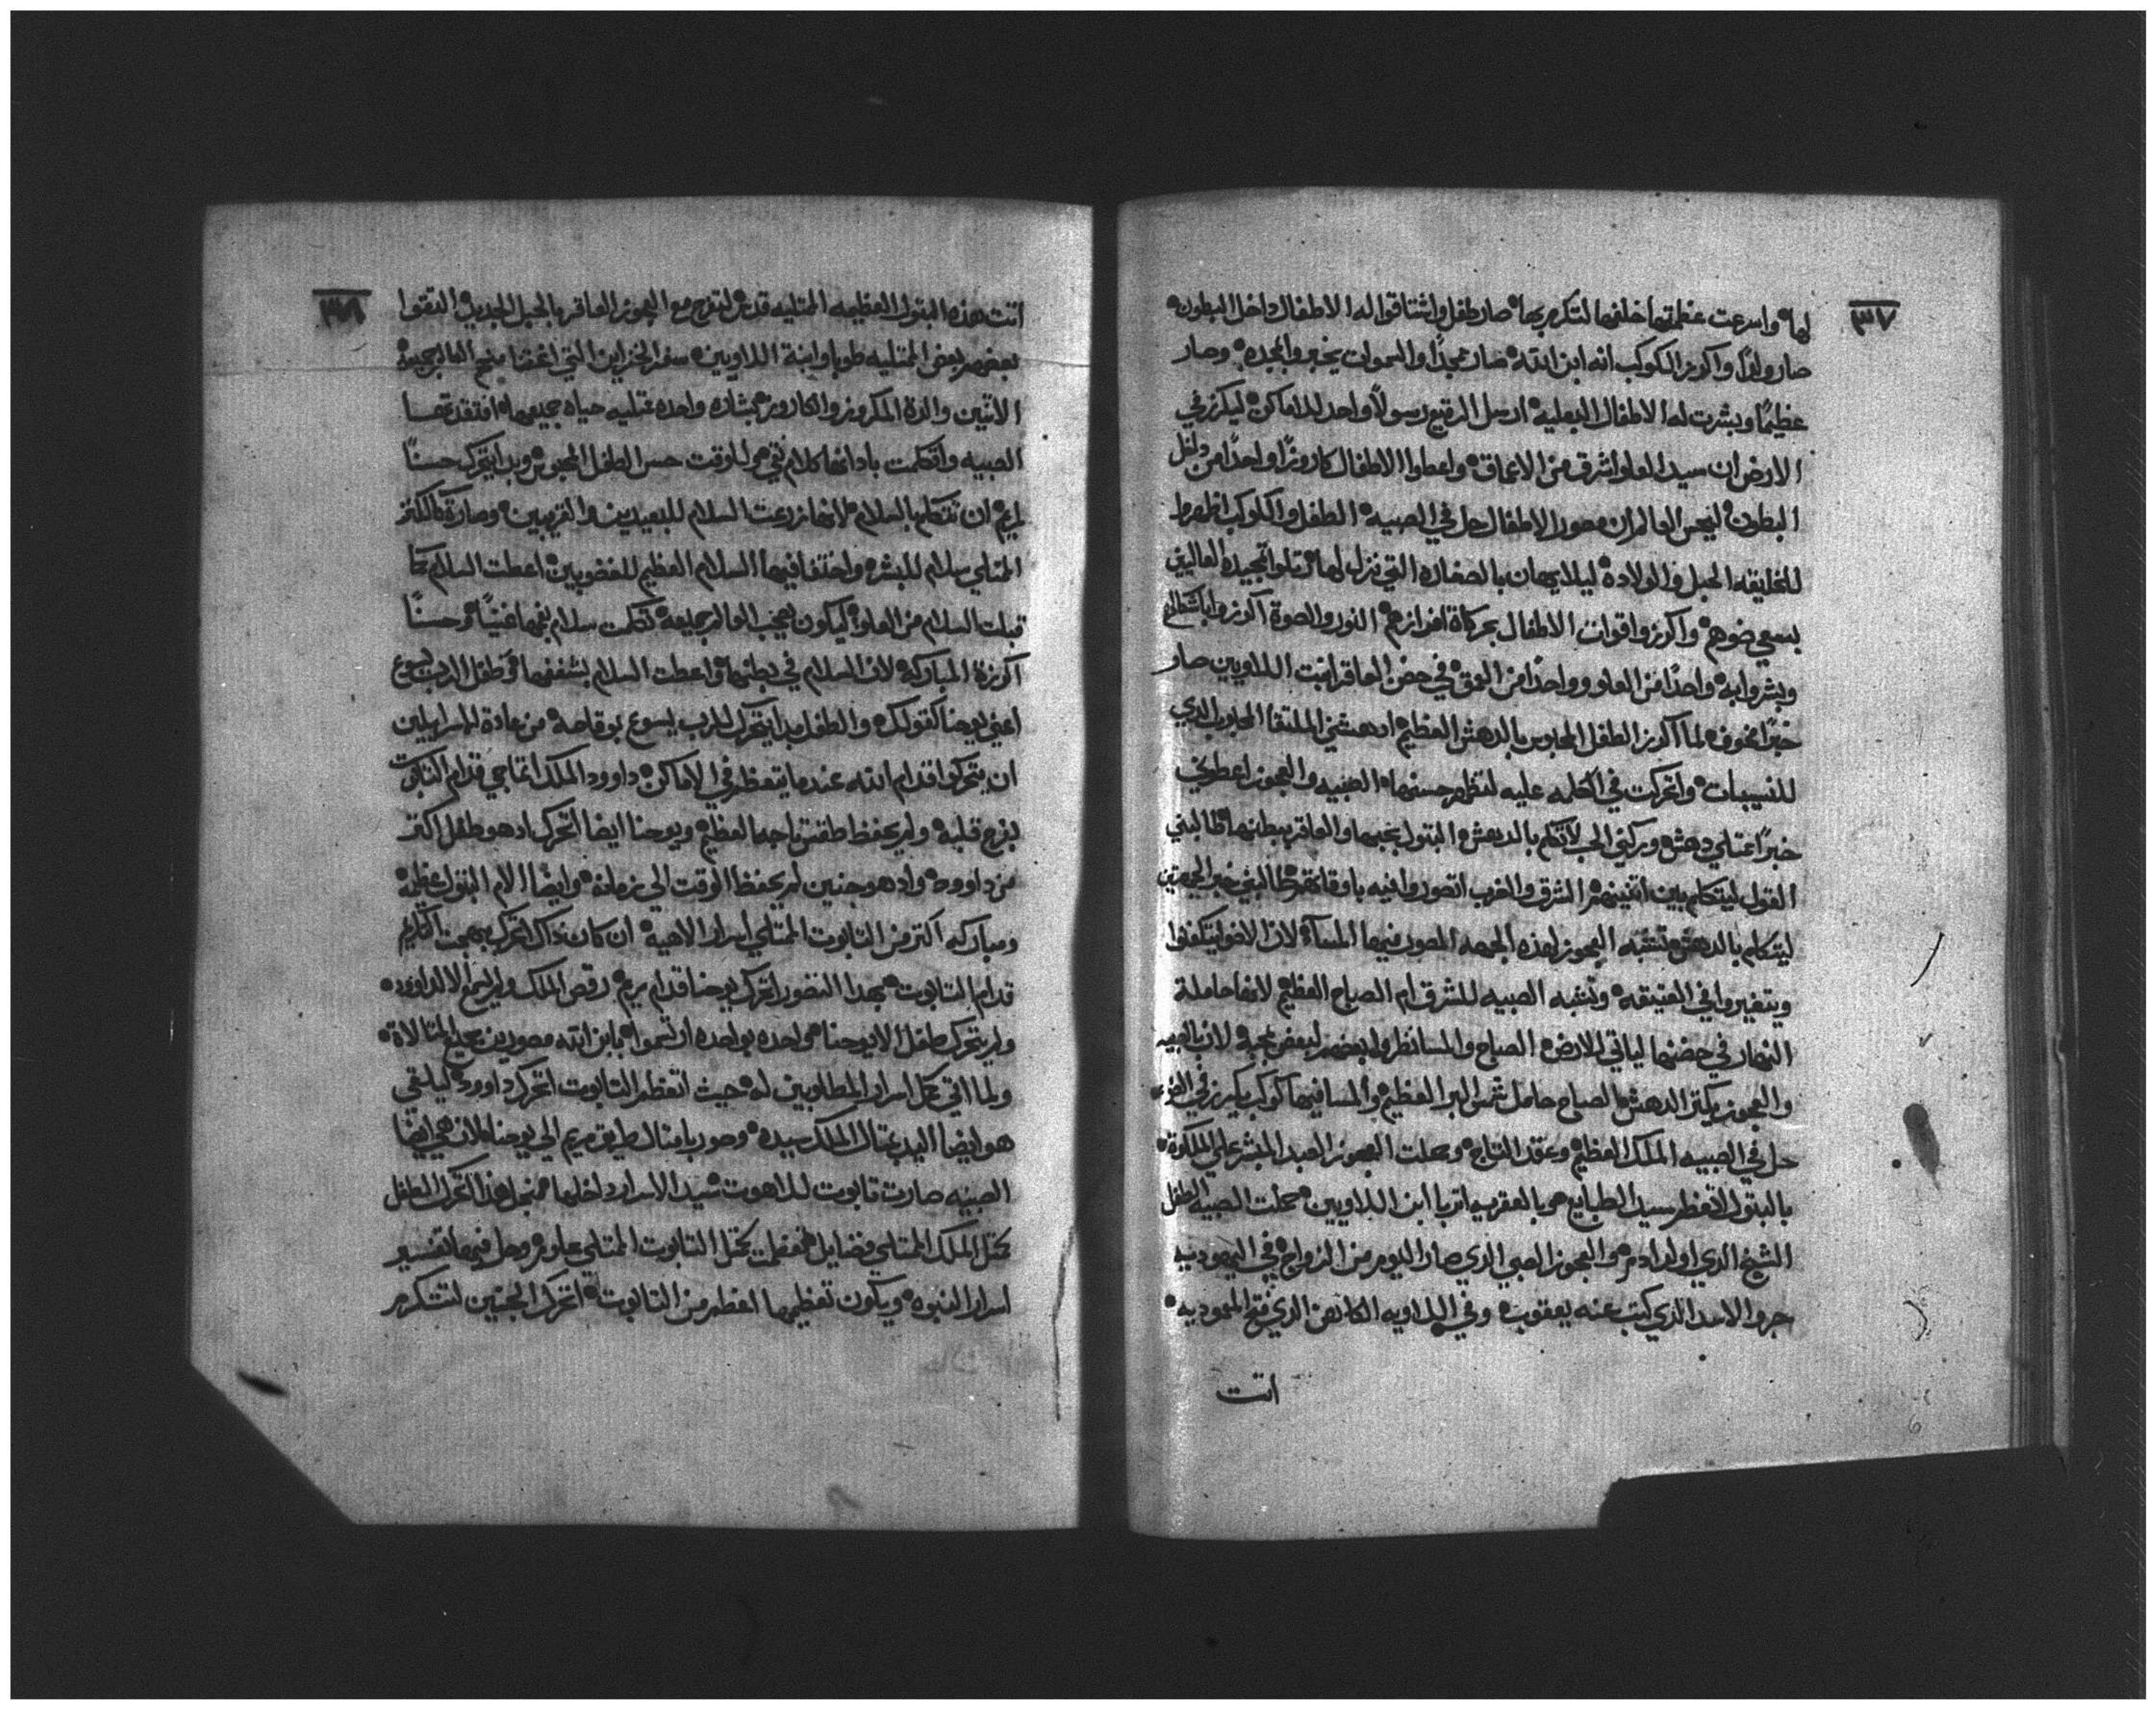 ٣٧
لها واسرعت عظمتها خلفها لتكرم بها صار طفل واشتاقوا له الاطفال داخل البطون
صار ولدًا واكرز الكوكب انه ابن الله صار مجدًا والسموات يخبروا بمجده وصار
عظيمًا وبشرت له الاطفال البعليه ارسل الرفيع رسولاً واحد للاماكن ليكرز في
الارض ان سيد العلو اشرق من الاعماق واعطوا الاطفال كاروزًا واحدًا من داخل
البطون ليحس العالم ان مصور الاطفال حل في الصبيه الطفل والكوكب اظهروا
للخليقه الحبل والولادة ليلا يهان بالصغاره التي نزل لها رتلوا تمجيده العاليين
بسعي ضوهم واكرزوا قوات الاطفال بحركاة افرازهم النور والصوة اكرزوا باشكالهم
وبشروا به واحدًا من العلو وواحدًا من العمق في حضن العاقر ابنت اللاويين صار
خبرًا مخوف لما اكرز الطفل المحبوس بالدهش العظيم ادهشني الملتقا المحبوب الذي
للنسيبات واتحركت في الكلمه عليه لتظهر حسنها الصبيه والعجوز اعطوني
خبرًا ممتلي دهش وركني الحب لاتكلم بالدهش البتول بحبها والعاقر ببطنها طالبني
القول ليتكلم بين اتنينهم الشرق والغرب اتصوروا فيه باوقاتهم طالبني خبر الجهتين
ليتكلم بالدهش تشبه العجوز لهذه الجهه المصور فيها المسآء لان الاضو ليتكفنوا
ويتغيروا في العتيقه وتشبه الصبيه للشرق ام الصباح العظيم لانها حاملة
النهار في حضنها لياتي للارض الصباح والمسا نظروا بعضهم لبعض بمحبة لان بالصبيه
والعجوز يكتر الدهش الصباح حامل شمس البر العظيم والمسا فيها كوكب يكرز في الضوء
حل في الصبيه الملك العظيم وعقد التاج وحملت العجوز العبد المبشر علي الملكوة
بالبتول اتعظم سيد الطبايع وبالعقريه اتربا ابن اللاويين حملت الصبيه الطفل
الشيخ الذي اولد ادم والعجوز الصبي الذي صار اليوم من الزواج في اليهوديه
جرو الاسد الذي كتب عنه يعقوب وفي اللاويه الكاهن الذي فتح المعموديه
اتت
٣٨
اتت هذه البتول العظيمه الممتليه قدس لتفرح مع العجوز العاقر بالحبل الجديد التقوا
بعضهم بعض الممتليه طوبا وابنة اللاويين سفر الخزاين التي اغتنا منهم العالم جميعه
الاتنين والدة المكروز والكاروز بشاره واحده ممتليه حياه جميعها افتقدتها
الصبيه واتكلمت باداتها كلام نقي والوقت حس الطفل المحبوس وبدا يتحرك حسنًا
لمريم ان تتكلم بالسلام لانها زرعت السلام للبعيدين والقريبين وصارة كالكنز
الممتلي سلام للبشر واختفا فيها السلام العظيم للغضوبيين اعطت السلام كما
قبلت السلام من العلو ليكون يعجب العالم جميعه تكلمت سلام بفمها غنيًا وحسنًا
اكرزة المباركه لان السلام في بطنها واعطت السلام بشفتها وطفل الرب يسوع
اعني يوحنا كقولك والطفل بدا يتحرك للرب يسوع بوقاحه من عادة الاسراييلين
ان يتحركوا قدام الله عندما يتعظم في الاماكن داوود الملك اتماجي قدام التابوت
بفرح قلبه ولم يحفظ طقس تاجه العظيم ويوحنا ايضا اتحرك اذ هو طفل اكتر
من داوود واذ هو جنين لم يحفظ الوقت الي زمانه وايضًا الام البتول عظيمة
ومباركه اكتر من التابوت الممتلي اسرار الاهيه ان كان ذاك اتحرك بهجت الكاريم
قدام التابوت بهذا التصور اتحرك يوحنا قدام مريم رقص الملك ولم ليسمع الا لداوود
ولم يتحرك طفل الا يوحنا واحده بواحده ارتسموا بابن الله مصورين جميع المتالاة
ولما اتي كمل اسرار المطلوبين له حيث اتعظم التابوت اتحرك داوود ليلتقي
هو ايضا اليد بمتال الملك سيده وحوربا متال طريق مريم الي يوحنا لان هي ايضًا
الصبيه صارت تابوت للاهوت سيد الاسرار داخلها من اجل هذا اتحرك الطفل
كمتل الملك الممتلي فضايل فعظمت كمتل التابوت الممتلي علو وحل فيها تفسير
اسرار النبوه ويكون تعظيمها اعظم من التابوت اتحرك الجنين لتتكرم